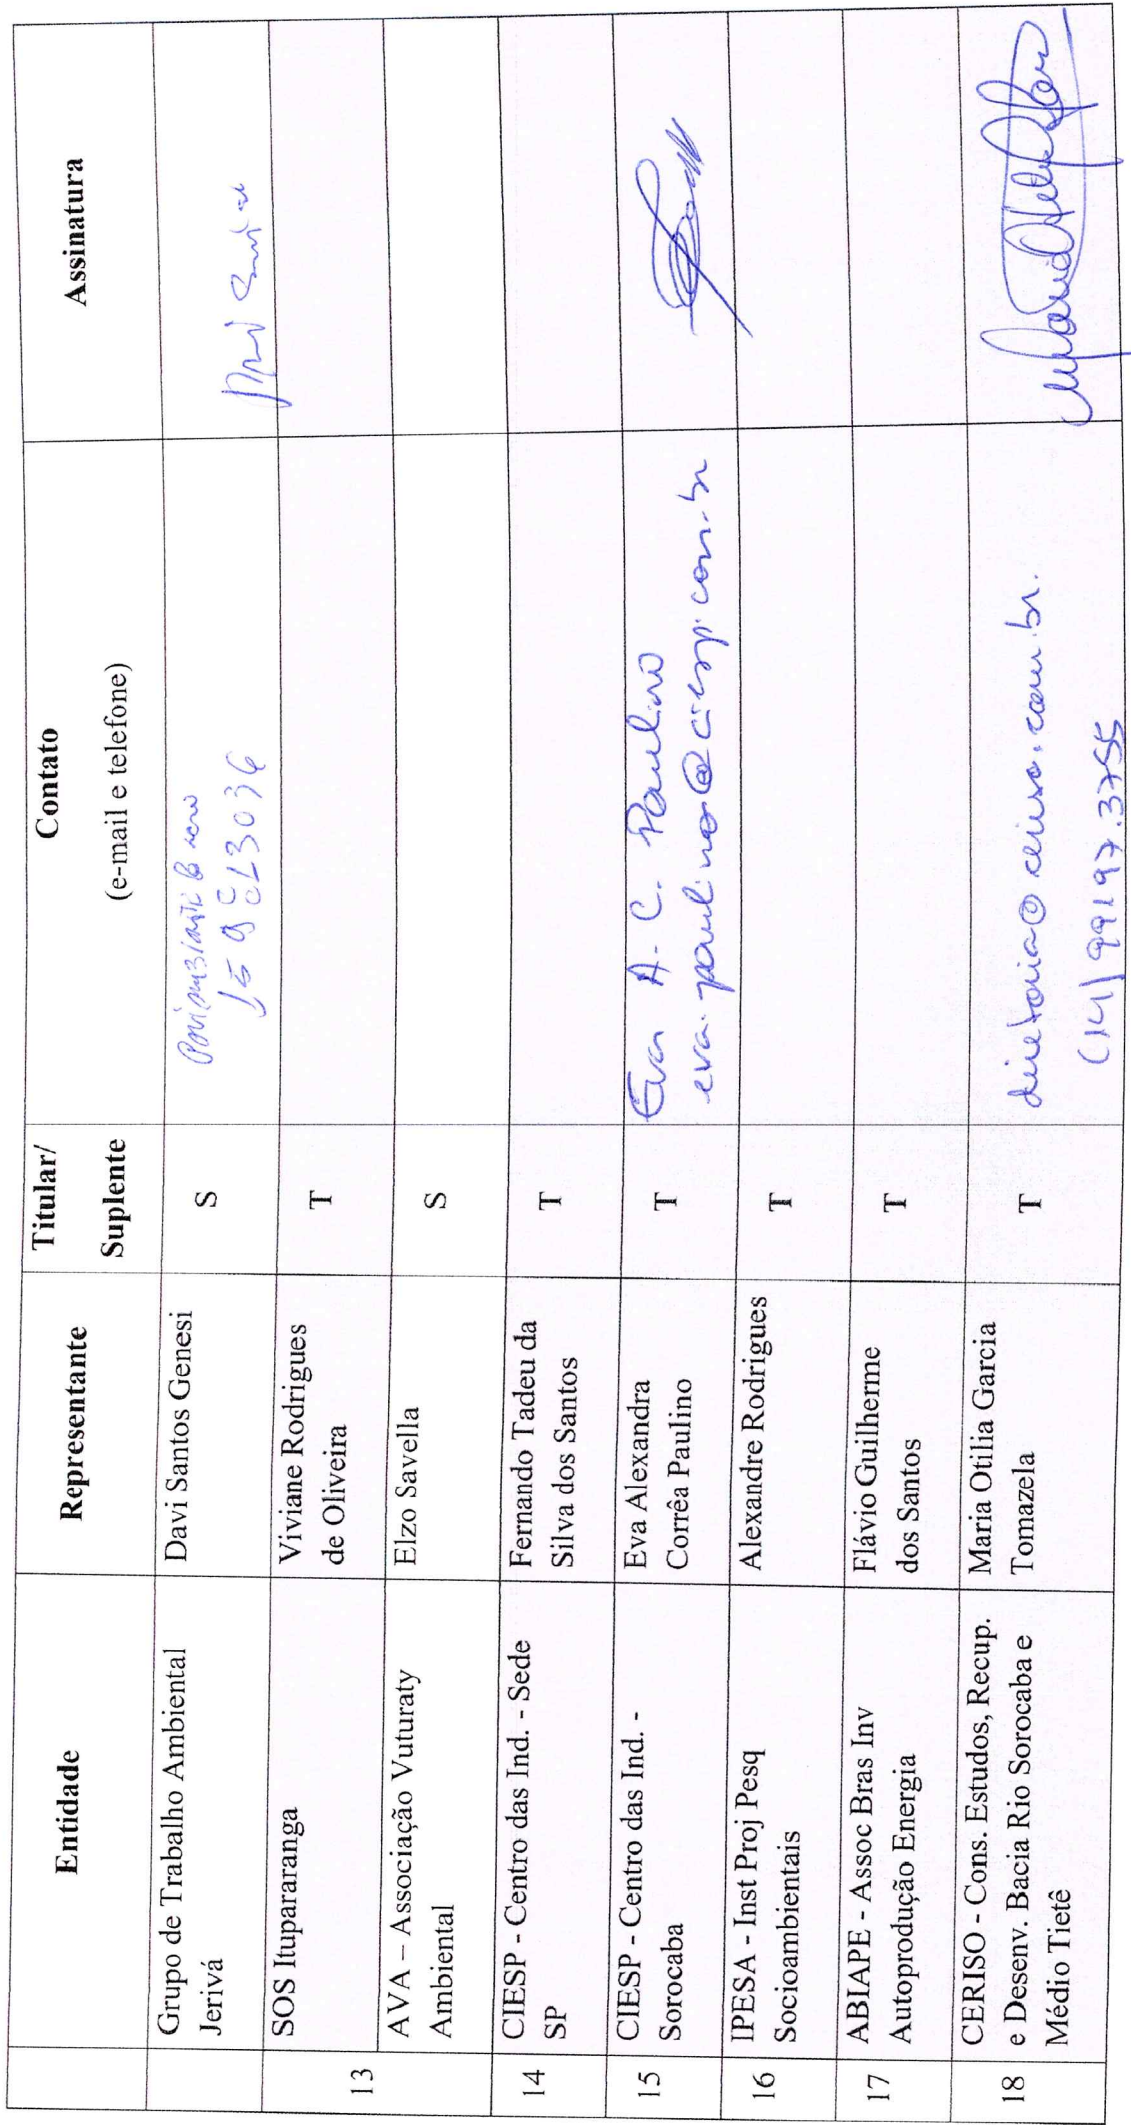 Entidade
Representante
Titular/
Suplente
Contato
(e-mail e telefone)
Assinatura
Grupo de Trabalho Ambiental
Jerivá
Davi Santos Genesi
S
13
SOS Itupararanga
Viviane Rodrigues
de Oliveira
T
AVA – Associação Vuturaty
Ambiental
Elzo Savella
S
14
CIESP - Centro das Ind. - Sede
SP
Fernando Tadeu da
Silva dos Santos
T
15
CIESP - Centro das Ind. -
Sorocaba
Eva Alexandra
Corrêa Paulino
T
Eva A. C. Paulino
eva.paulino@ciesp.com.br
16
IPESA - Inst Proj Pesq
Socioambientais
Alexandre Rodrigues
T
17
ABIAPE - Assoc Bras Inv
Autoprodução Energia
Flávio Guilherme
dos Santos
T
18
CERISO - Cons. Estudos, Recup.
e Desenv. Bacia Rio Sorocaba e
Médio Tietê
Maria Otilia Garcia
Tomazela
T
diretoria@ceriso.com.br.
(14) 99197.3755